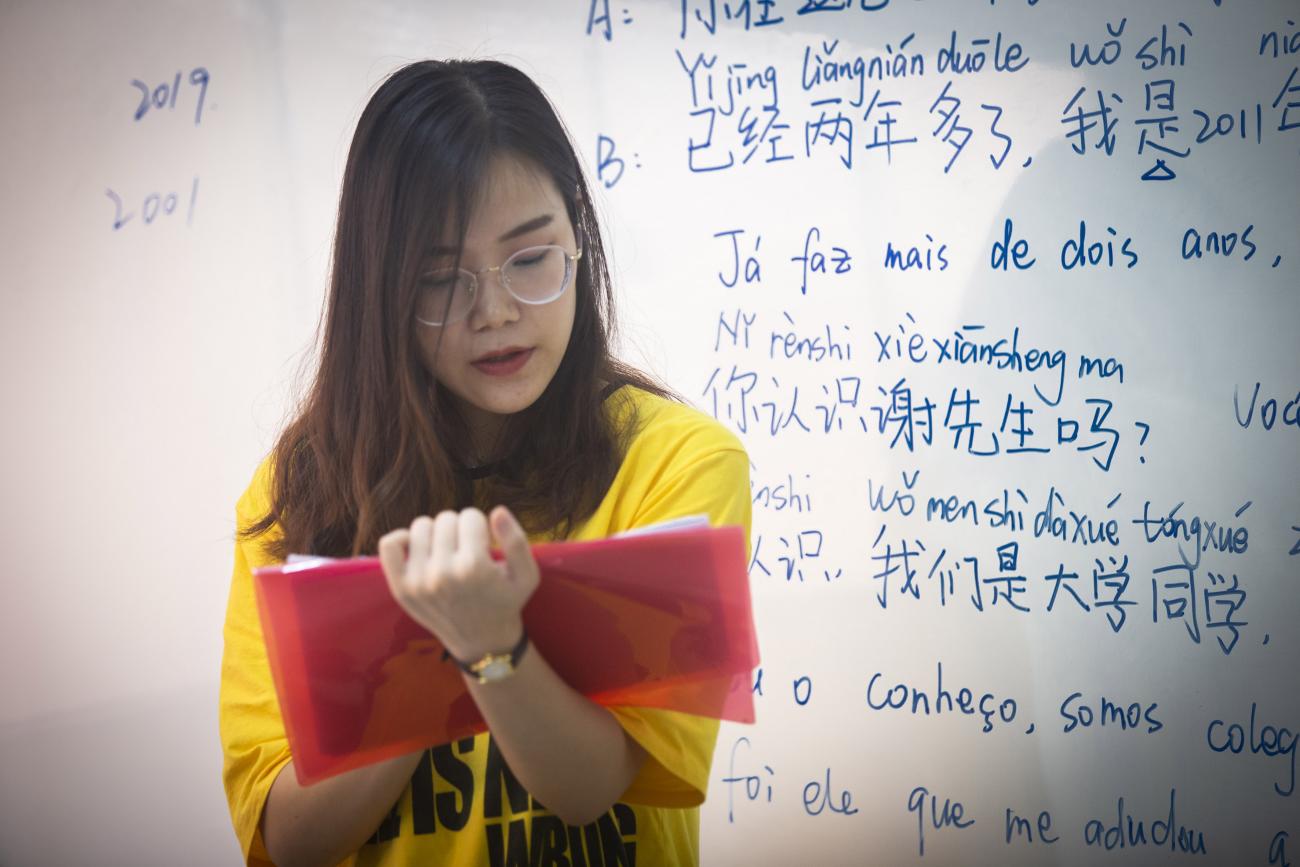 2019.
2001
A: 你在
Yǐjīng liǎngnián duōle wǒ shì
B: 已经两年多了, 我是2011年
Já faz mais de dois anos,
Nǐ rènshi xièxiānsheng ma
你认识谢先生吗?
Você
wǒmen shì dàxué tóngxué
认识, 我们是大学同学.
o conheço, somos coleg
foi ele que me adudou a
IS
WRONG